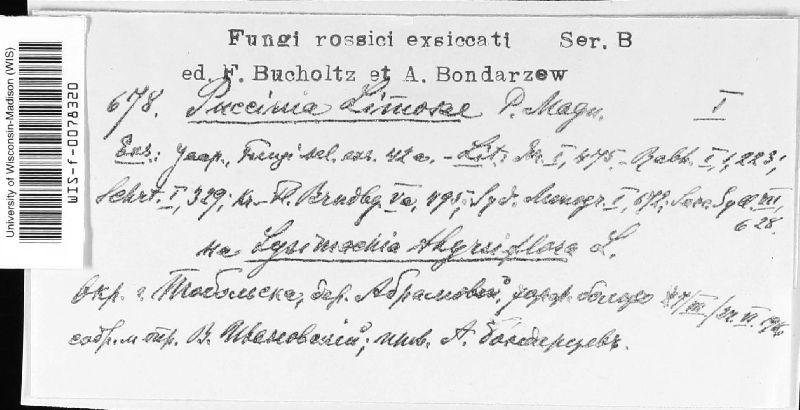 University of Wisconsin-Madison (WIS)
WIS-f-0078320
Fungi rossici exsiccati Ser. B
ed. F. Bucholtz et A. Bondarzew
678. Puccinia Limosae P. Magn. I
Exs.: Jaap., Fungi sel. exs. 42a. - Lit.: I, 475. - Rabh. I, 1, 223;
Schrt. I, 329; Kr.-Fl. Brndbg Va, 495; Syd. Monogr. I, 672; Sacc. Syll. VII, 628.
на Lysimachia thyrsiflora L.
Окр. г. Тобольска, дер. Абрамовой, торф. болото
собр. и опр. В. Ивановскій; А. Бондарцевъ.